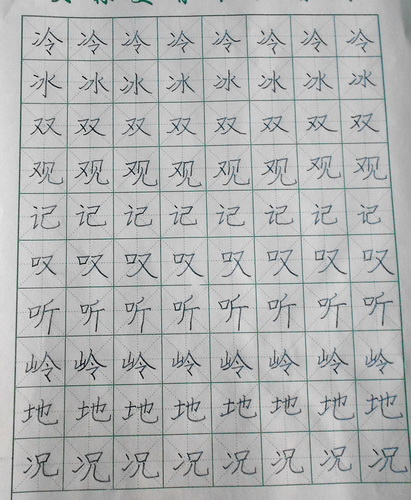 冷冷冷冷冷冷冷冷
冰冰冰冰冰冰冰冰
双双双双双双双双
观观观观观观观观
记记记记记记记记
叹叹叹叹叹叹叹叹
听听听听听听听听
岭岭岭岭岭岭岭岭
地地地地地地地地
况况况况况况况况